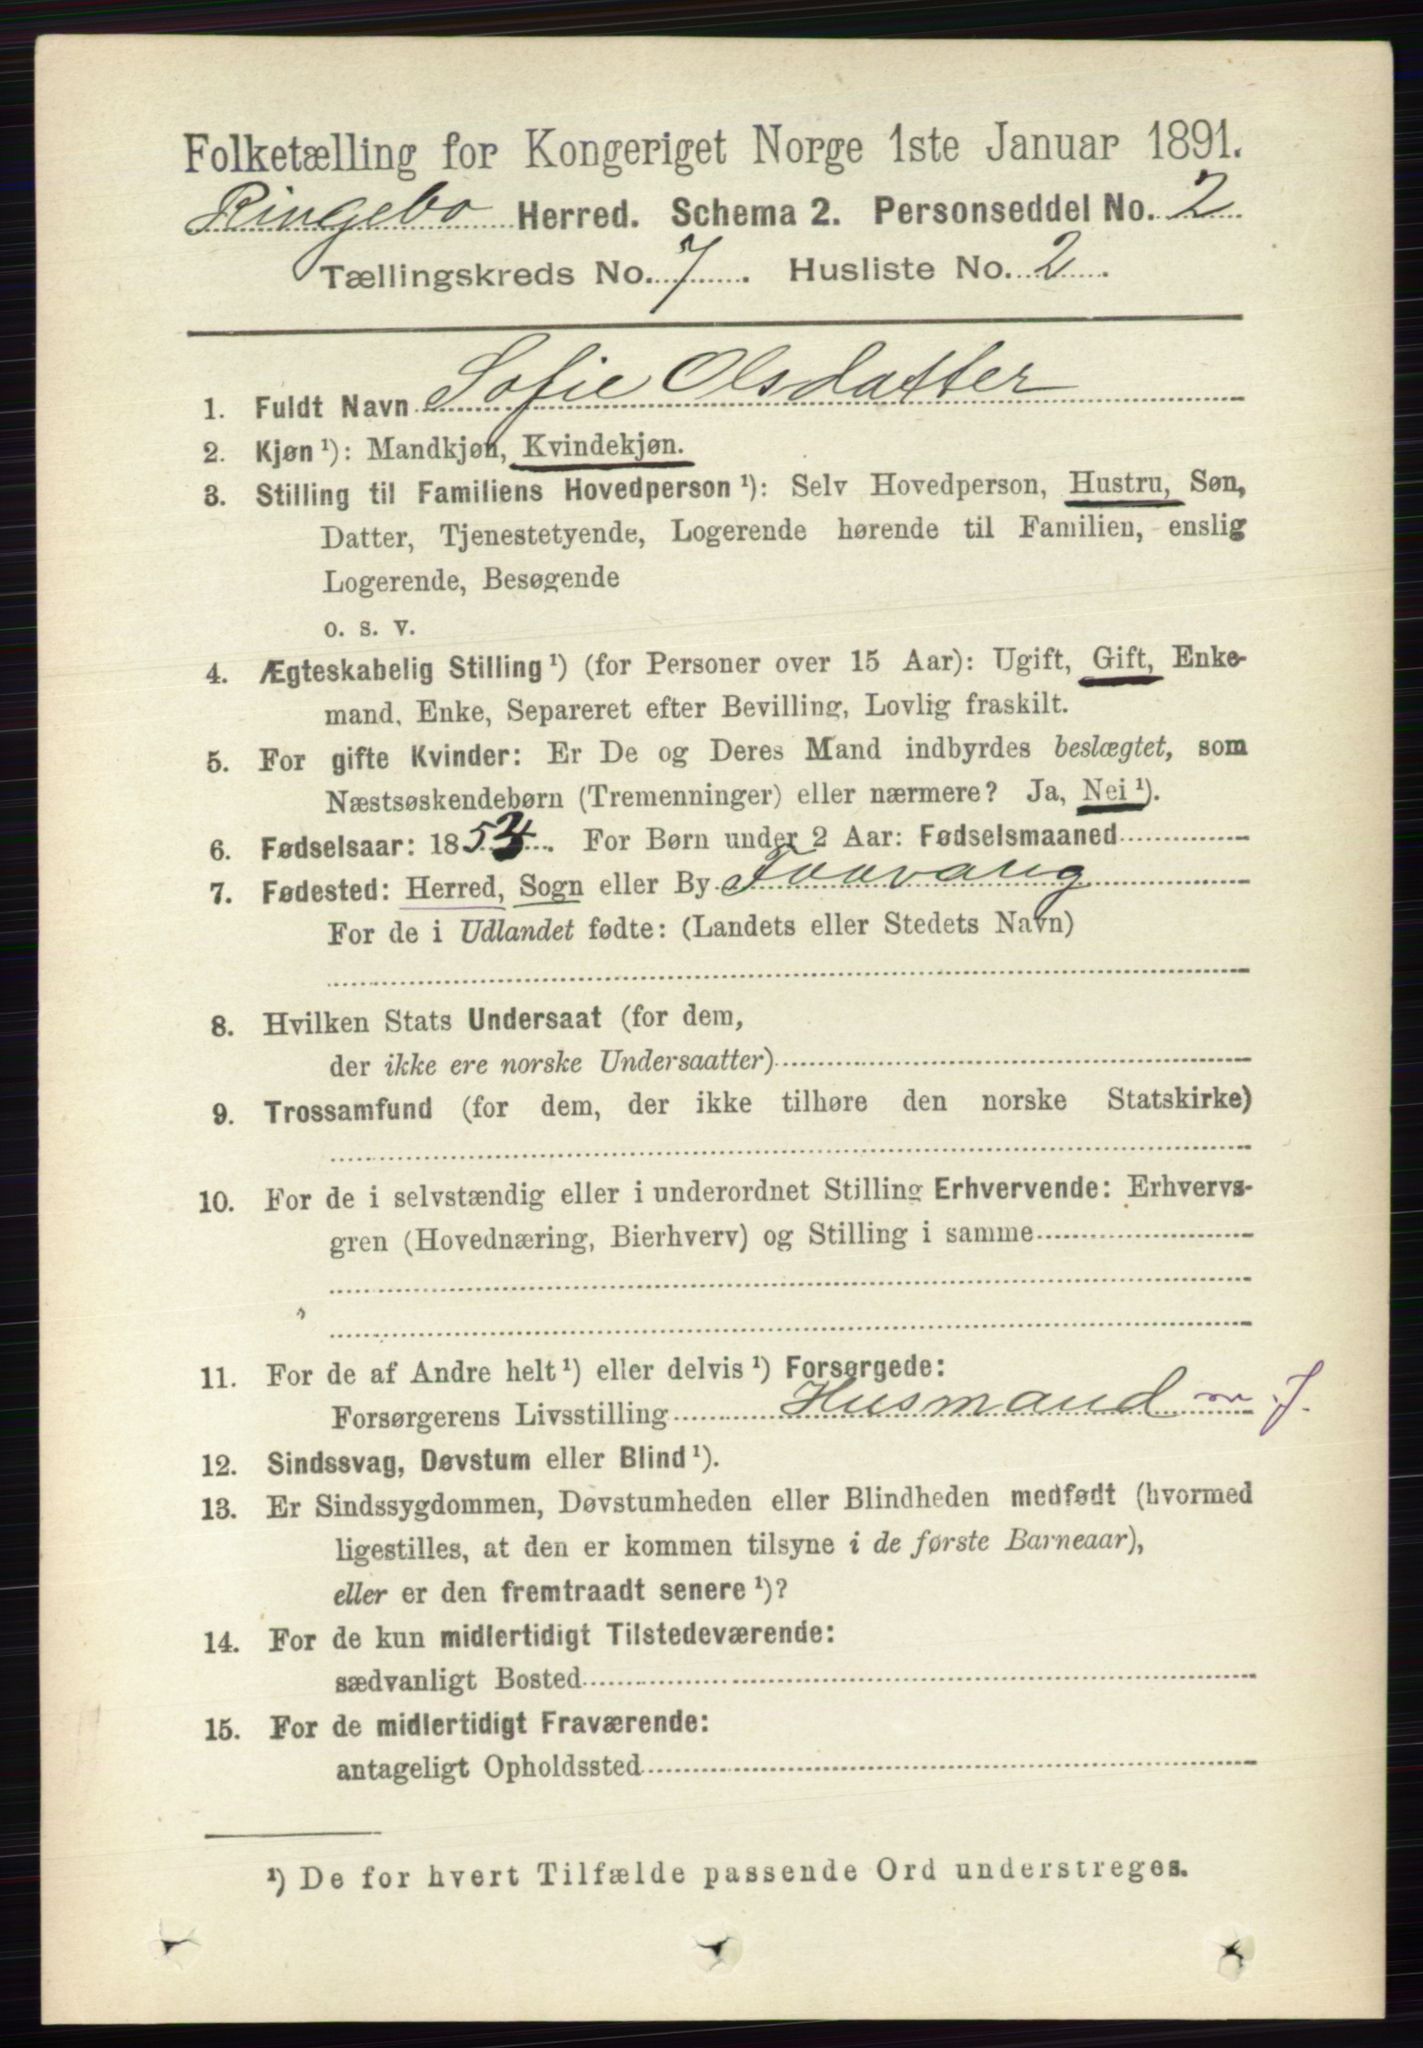 Folketælling for Kongeriget Norge 1ste Januar 1891.
Ringebo Herred. Schema 2. Personseddel No. 2
Tællingskreds No. 7. Husliste No. 2.
1. Fuldt Navn Sofie Olsdatter
2. Kjøn ¹): Mandkjøn, Kvindekjøn.
3. Stilling til Familiens Hovedperson ¹): Selv Hovedperson, Hustru, Søn,
Datter, Tjenestetyende, Logerende hørende til Familien, enslig
Logerende, Besøgende
o. s. v.
4. Ægteskabelig Stilling ¹) (for Personer over 15 Aar): Ugift, Gift, Enke-
mand, Enke, Separeret efter Bevilling, Lovlig fraskilt.
5. For gifte Kvinder: Er De og Deres Mand indbyrdes beslægtet, som
Næstsøskendebørn (Tremenninger) eller nærmere? Ja, Nei ¹).
6. Fødselsaar: 185. For Børn under 2 Aar: Fødselsmaaned
7. Fødested: Herred, Sogn eller By
For de i Udlandet fødte: (Landets eller Stedets Navn)
8. Hvilken Stats Undersaat (for dem,
der ikke ere norske Undersaatter)
9. Trossamfund (for dem, der ikke tilhøre den norske Statskirke)
10. For de i selvstændig eller i underordnet Stilling Erhvervende: Erhvervs-
gren (Hovednæring, Bierhverv) og Stilling i samme
11. For de af Andre helt ¹) eller delvis ¹) Forsørgede:
Forsørgerens Livsstilling Husmand m. J.
12. Sindssvag, Døvstum eller Blind ¹).
13. Er Sindssygdommen, Døvstumheden eller Blindheden medfødt (hvormed
ligestilles, at den er kommen tilsyne i de første Barneaar),
eller er den fremtraadt senere ¹)?
14. For de kun midlertidigt Tilstedeværende:
sædvanligt Bosted
15. For de midlertidigt Fraværende:
antageligt Opholdssted
¹) De for hvert Tilfælde passende Ord understreges.